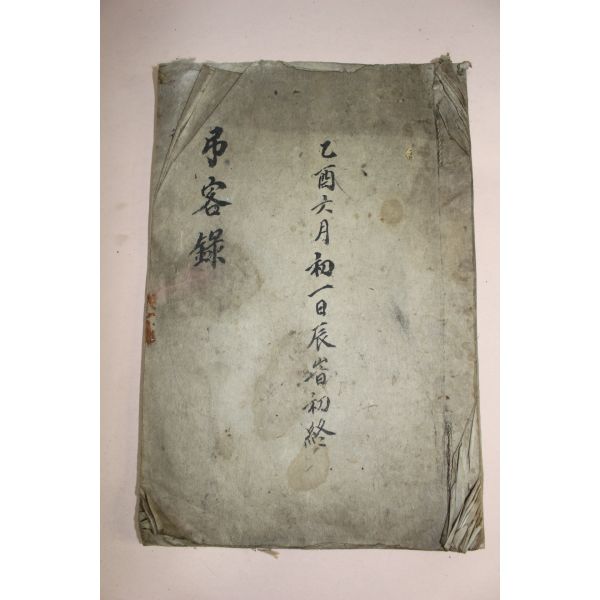 乙酉六月初一日辰旹初終
弔客錄